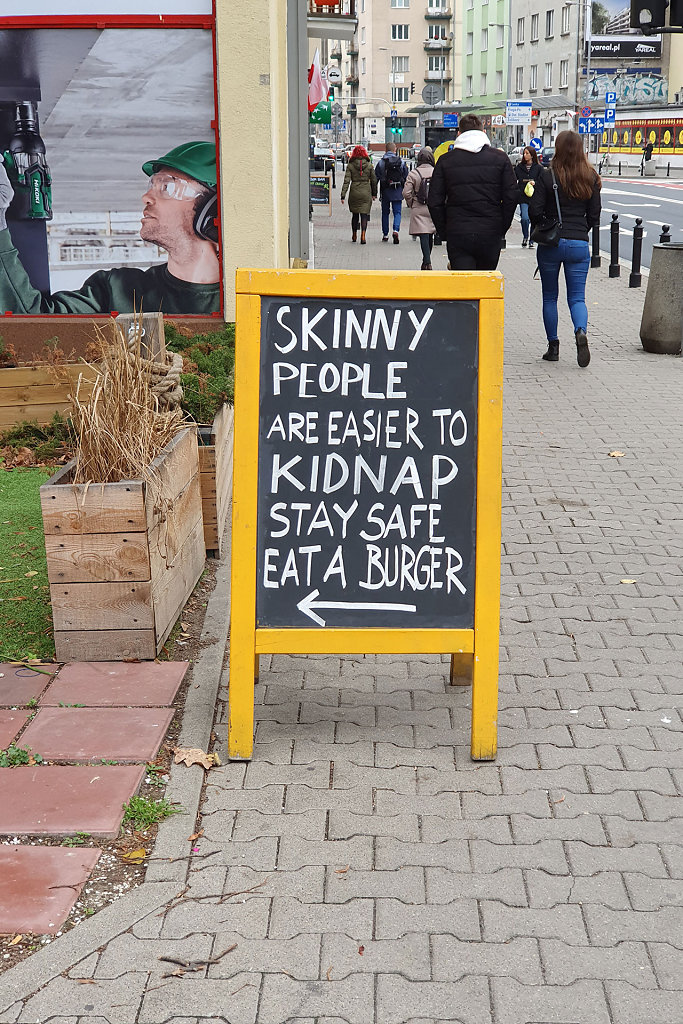 SKINNY
PEOPLE
ARE EASIER TO
KIDNAP
STAY SAFE
EAT A BURGER
yareal.pl
YAREAL
HiKOKI